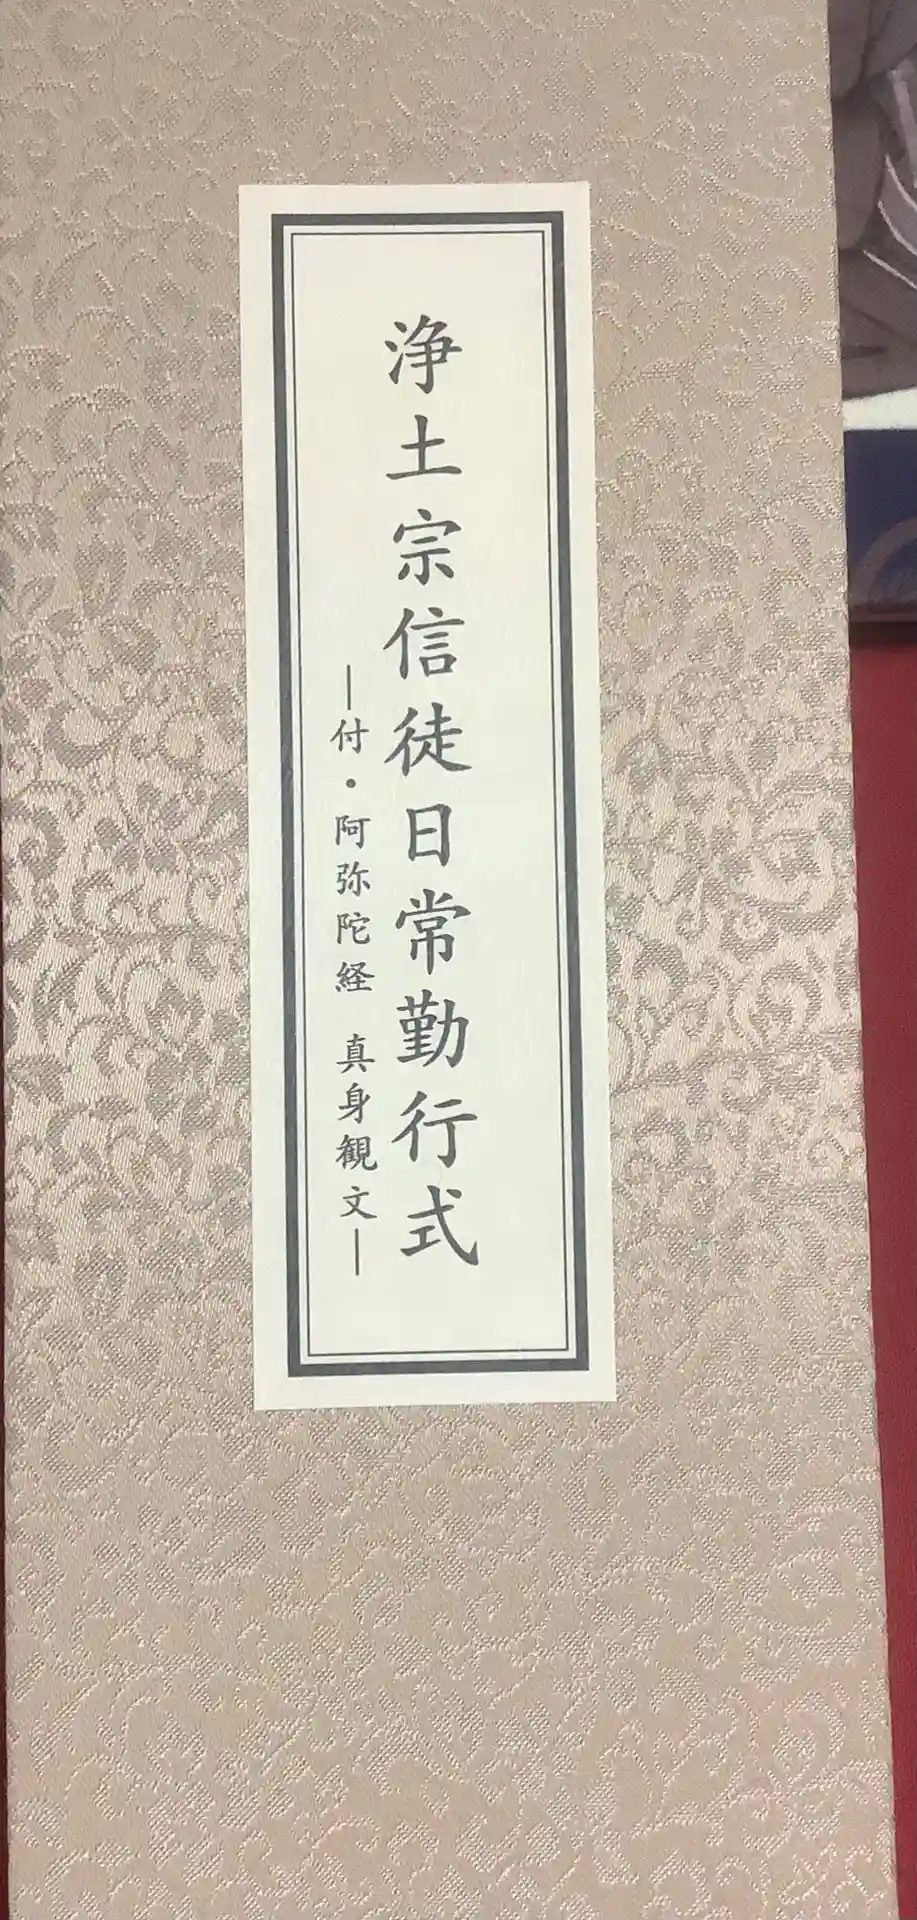 浄土宗信徒日常勤行式
―付・阿弥陀経　真身観文―